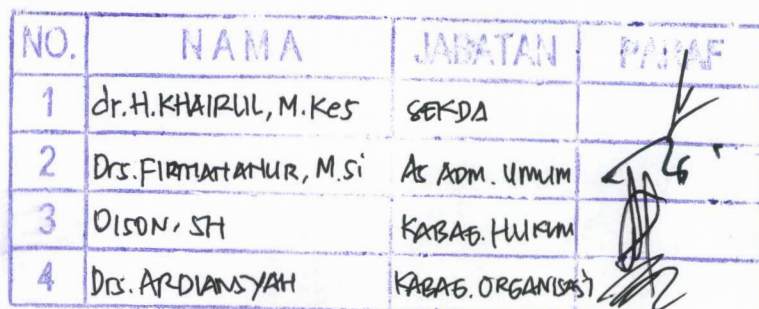 NO. NAMA JABATAN PARAF
1 dr.H.KHAIRUL, M.Kes SEKDA
2 Drs.FIRMANANUR, M.Si AS ADM. UMUM
3 DISON, SH KABAG. HUKUM
4 Drs. ARDIANSYAH KABAG. ORGANISASI